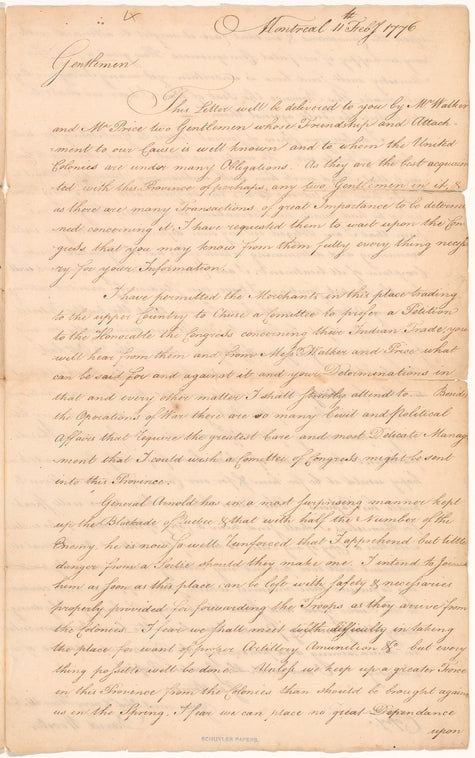 Montreal 11th Feby 1776
Gentlemen
This Letter will be delivered to you by Mr Walker
and Mr Price two Gentlemen whose Friendship and Attach-
ment to our Cause is well known and to whom the United
Colonies are under many Obligations. As they are the best acquain
ted with this Province of perhaps, any two Gentlemen in it, &
as there are many Transactions of great Importance to be determi
ned concerning it, I have requested them to wait upon the Con
gress that you may know from them fully every thing necess
ry for your Information.
I have permitted the Merchants in this place trading
to the upper Country to Chuse a Comittee to prefer a Petition
to the Honorable the Congress concerning their Indian Trade, you
will hear from them and from Messrs Walker and Price what
can be said for and against it and your Determinations in
that and every other matter I shall attend to. Besides
the Operations of War there are so many Civil and political
Affairs that require the greatest Care and most Delicate Manag
ment that I could wish a Comittee of Congress might be sent
into this Province.
General Arnold has in a most surprising manner kept
up the Blockade of Quebec & that with half the Number of the
Enemy. he is now so well reinforced that I apprehend but little
danger from a Sortie should they make one. I intend to join
him as soon as this place can be left with safety & necessaries
properly provided for forwarding the Troops as they arrive from
the Colonies. I fear we shall meet with difficulty in taking
the place for want of proper Artillery Amunition & but every
thing possible will be done. Unless we keep up a greater Force
in this Province from the Colonies than should be brought against
us in the Spring, I fear we can place no great Dependance
upon
SCHUYLER PAPERS.